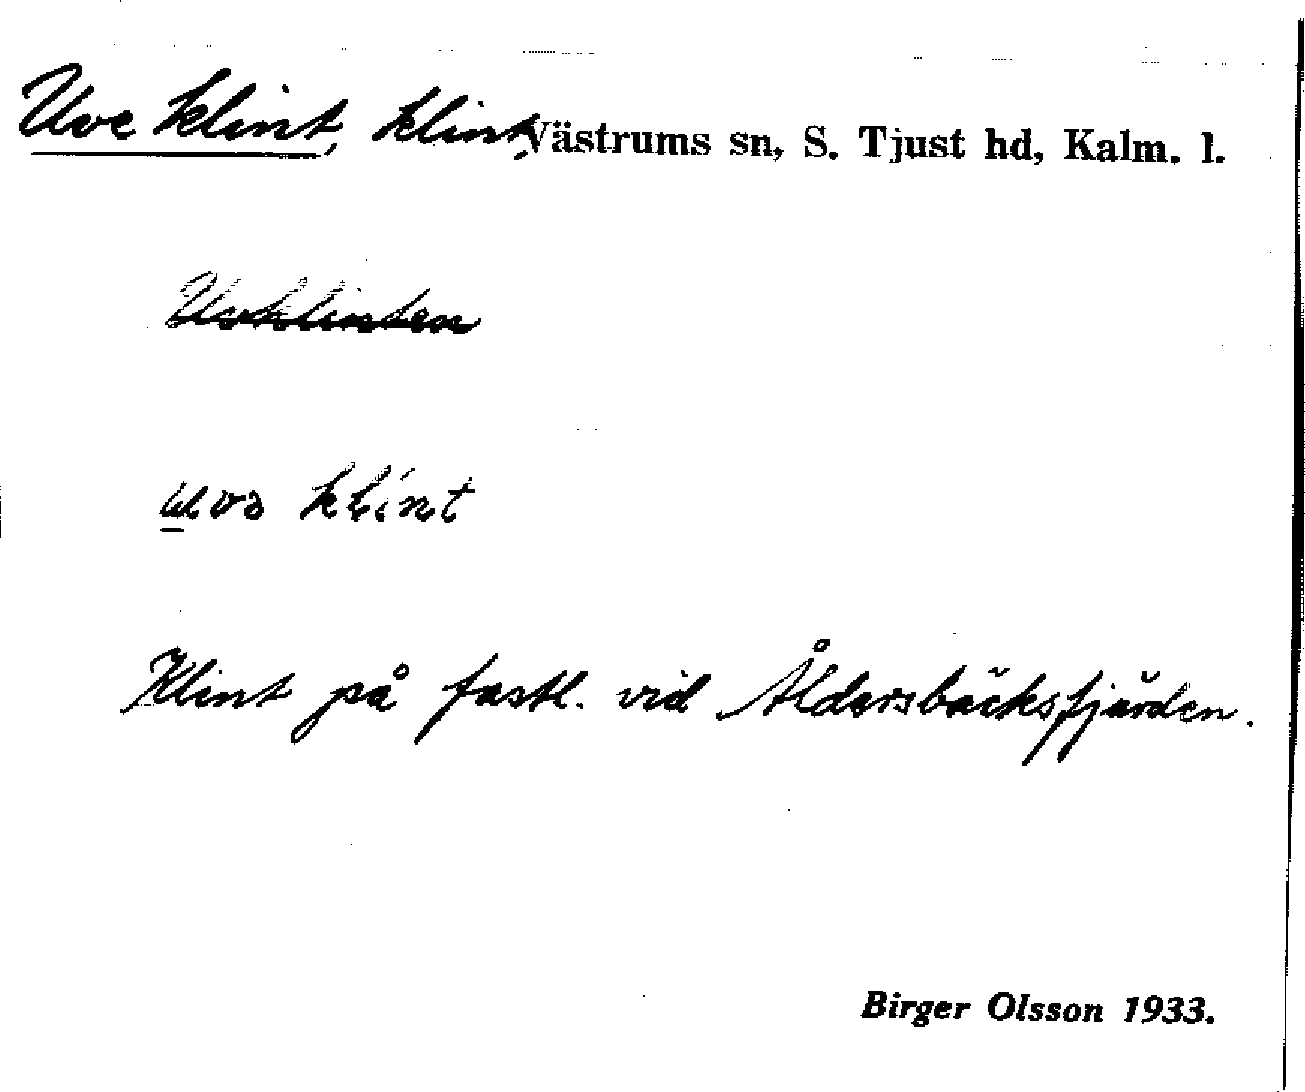 Uve klint, klint, Västrums sn, S. Tjust hd, Kalm. l.
Uvklinten
uvə klint
Klint på fastl. vid Åldersbäcksfjärden.
Birger Olsson 1933.